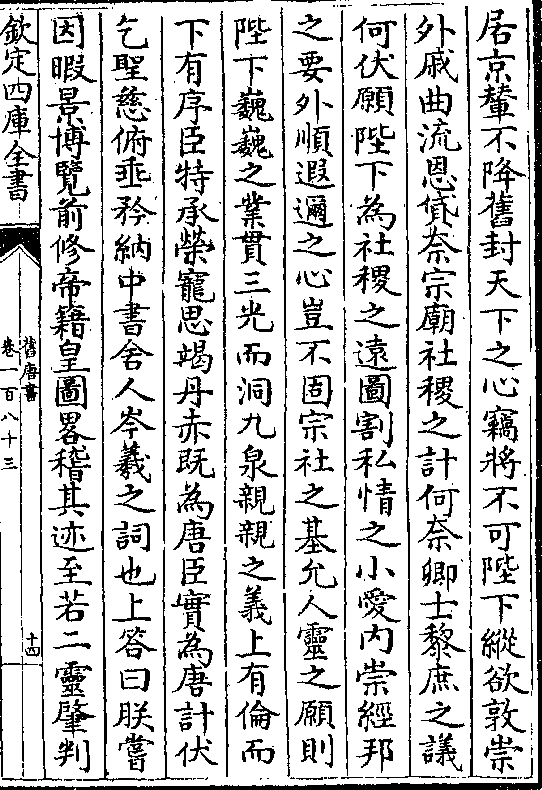 居京輦不降舊封天下之心竊將不可陛下縱欲敦崇
外戚曲流恩貸奈宗廟社稷之計何奈卿士黎庶之議
何伏願陛下為社稷之遠圖割私情之小愛内崇經邦
之要外順遐邇之心豈不固宗社之基允人靈之願則
陛下巍巍之業貫三光而洞九泉親親之義上有倫而
下有序臣特承榮寵思竭丹赤既為唐臣實為唐計伏
乞聖慈俯垂矜納中書舍人岑羲之詞也上答曰朕嘗
因暇景博覽前修帝籍皇圖畧稽其迹至若二靈肇判
欽定四庫全書
舊唐書
卷一百八十三
十四